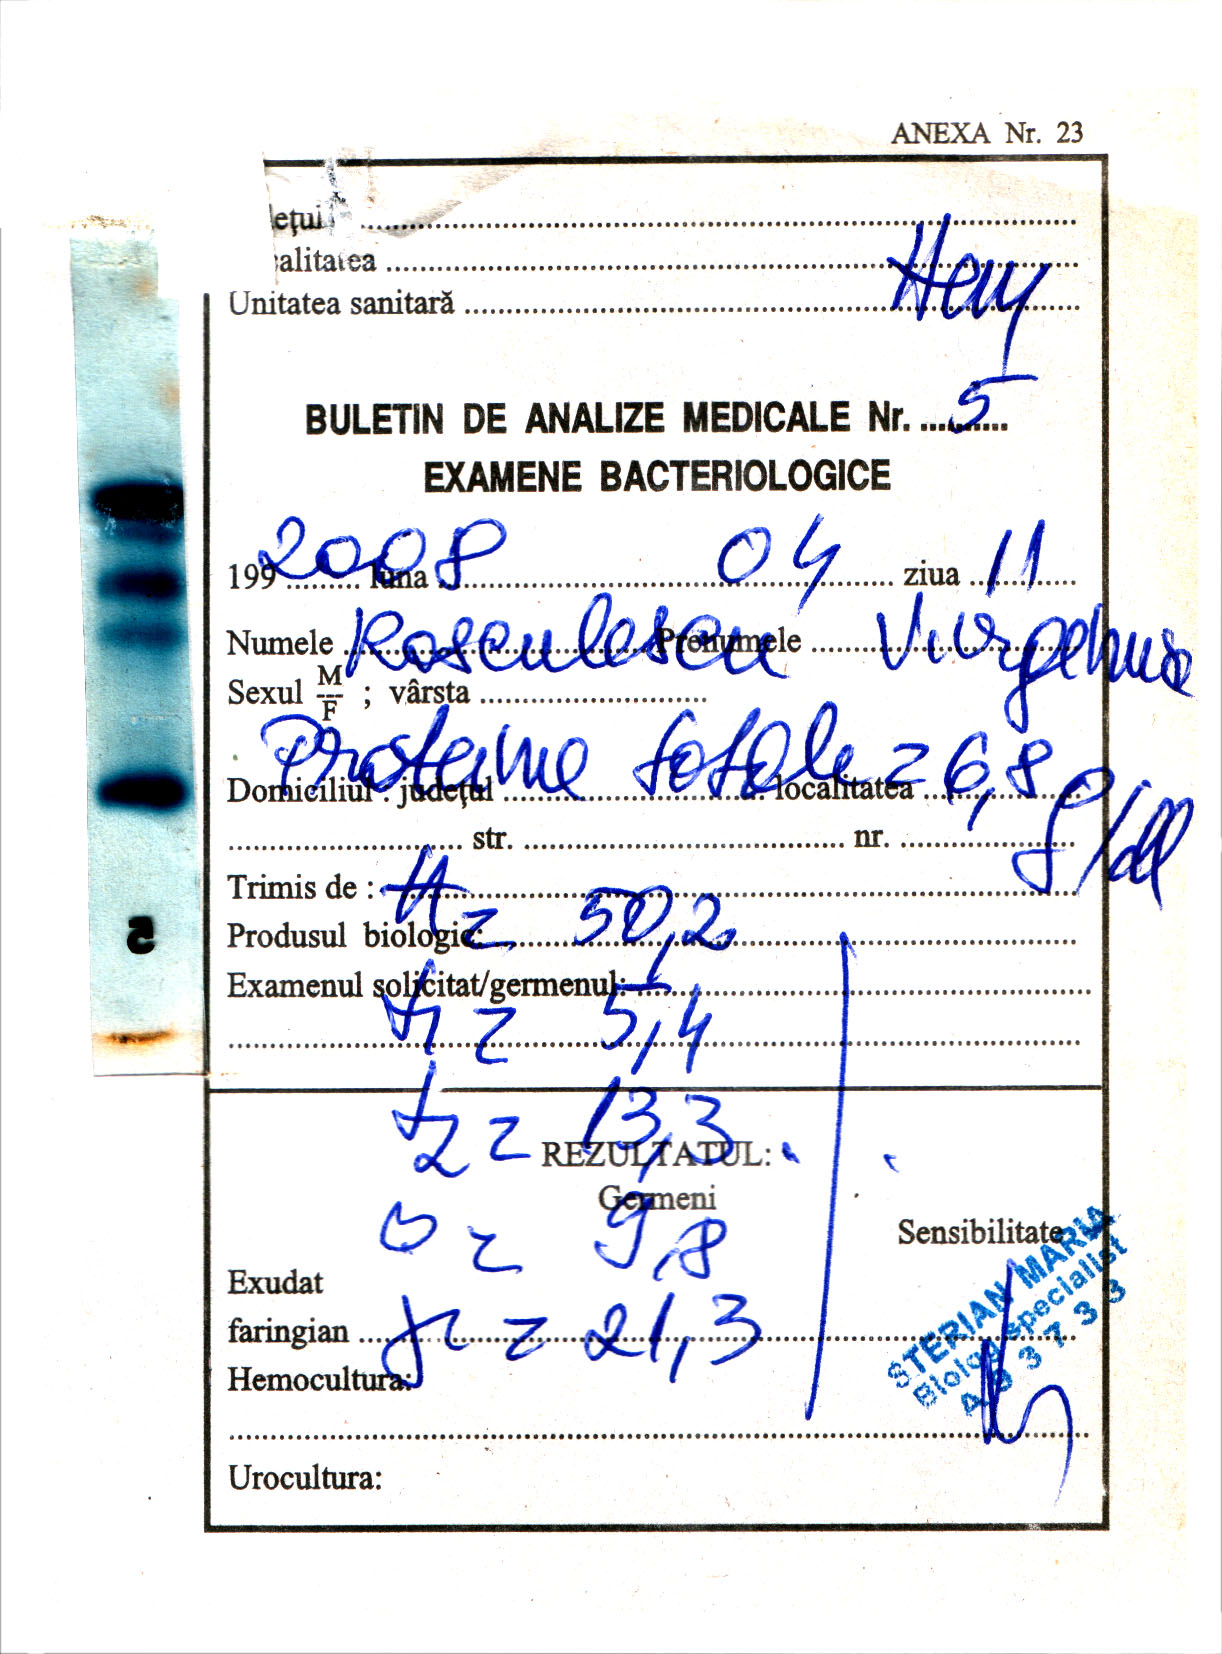 ANEXA Nr. 23
ețul
alitatea
Unitatea sanitară
BULETIN DE ANALIZE MEDICALE Nr. 5
EXAMENE BACTERIOLOGICE
199 2008 luna 04 ziua 11
Numele Rosculescu Prenumele
Sexul M/F ; vârsta
Proteine totale = 6,8 g/dl
Domiciliul : județul localitatea
str. nr.
Trimis de :
A = 50,2
Produsul biologic:
Examenul solicitat/germenul:
= 5,4
2 = 13,3
REZULTATUL:
Germeni
= 9,8
Sensibilitate
Exudat
faringian
= 21,3
Hemocultura:
Urocultura:
STERIAN MARIA
Biolog specialist
5